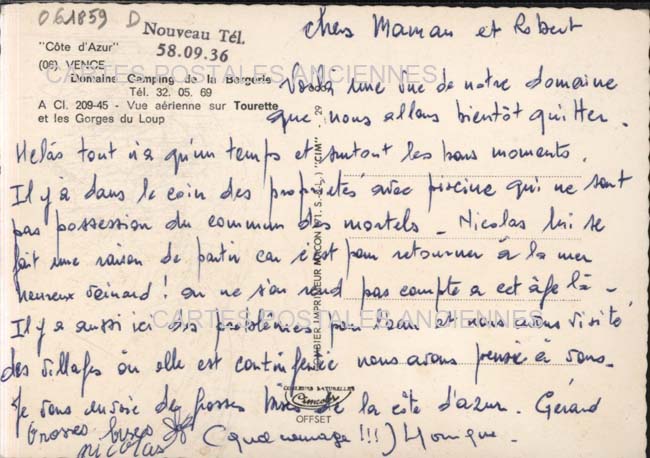 061859 D
Nouveau Tél.
58.09.36
"Côte d'Azur"
(06) VENCE
Domaine Camping de la Bergerie
Tél. 32. 05. 69
A Cl. 209-45 - Vue aérienne sur Tourette
et les Gorges du Loup
CARTES POSTALES ANCIENNES
chers Maman et Robert
Voilà une vue de notre domaine
que nous allons bientôt quitter.
Helàs tout n'a qu'un temps et surtout les bons moments.
Il y a dans le coin des propriétés avec piscine qui ne sont
pas possession du commun des mortels - Nicolas lui se
fait une raison de partir car c'est pour retourner à la mer
heureux veinard ! on ne s'en rend pas compte a cet âge là -
Il y a aussi ici des problèmes pour l'eau et nous avons visité
CARTES POSTALES ANCIENNES
des villages où elle est nous avons pensé à vous.
Je vous envoie de grosses bises de la côte d'azur. Gérard
Grosses bises (quel courage !!!)
nicolas
COMBIER IMPRIMEUR MACON (71. S.-&-L.) "CIM"
29
COULEURS NATURELLES
Cimcolor
OFFSET